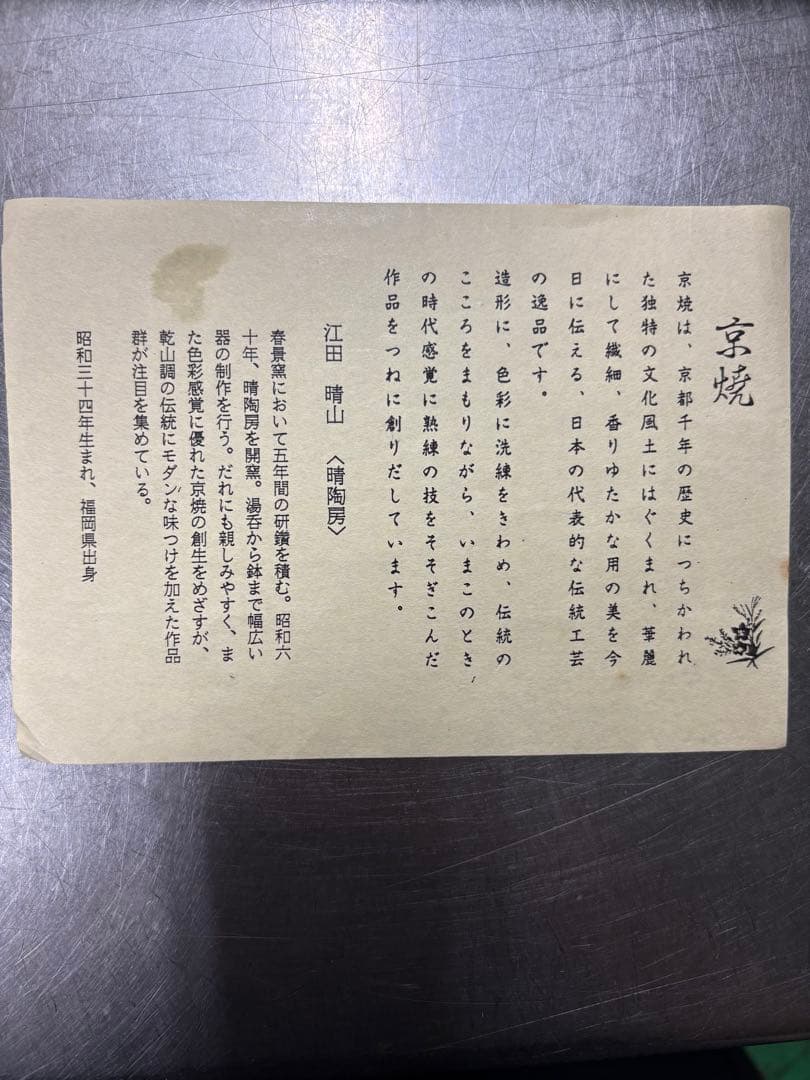 京焼
京焼は、京都千年の歴史につちかわれ
た独特の文化風土にはぐくまれ、華麗
にして繊細、香りゆたかな用の美を今
日に伝える、日本の代表的な伝統工芸
の逸品です。
造形に、色彩に洗練をきわめ、伝統の
こころをまもりながら、いまこのとき
の時代感覚に熟練の技をそそぎこんだ
作品をつねに創りだしています。
江田 晴山 〈晴陶房〉
春景窯において五年間の研鑽を積む。昭和六
十年、晴陶房を開窯。湯呑から鉢まで幅広い
器の制作を行う。だれにも親しみやすく、ま
た色彩感覚に優れた京焼の創生をめざすが、
乾山調の伝統にモダンな味つけを加えた作品
群が注目を集めている。
昭和三十四年生まれ、福岡県出身